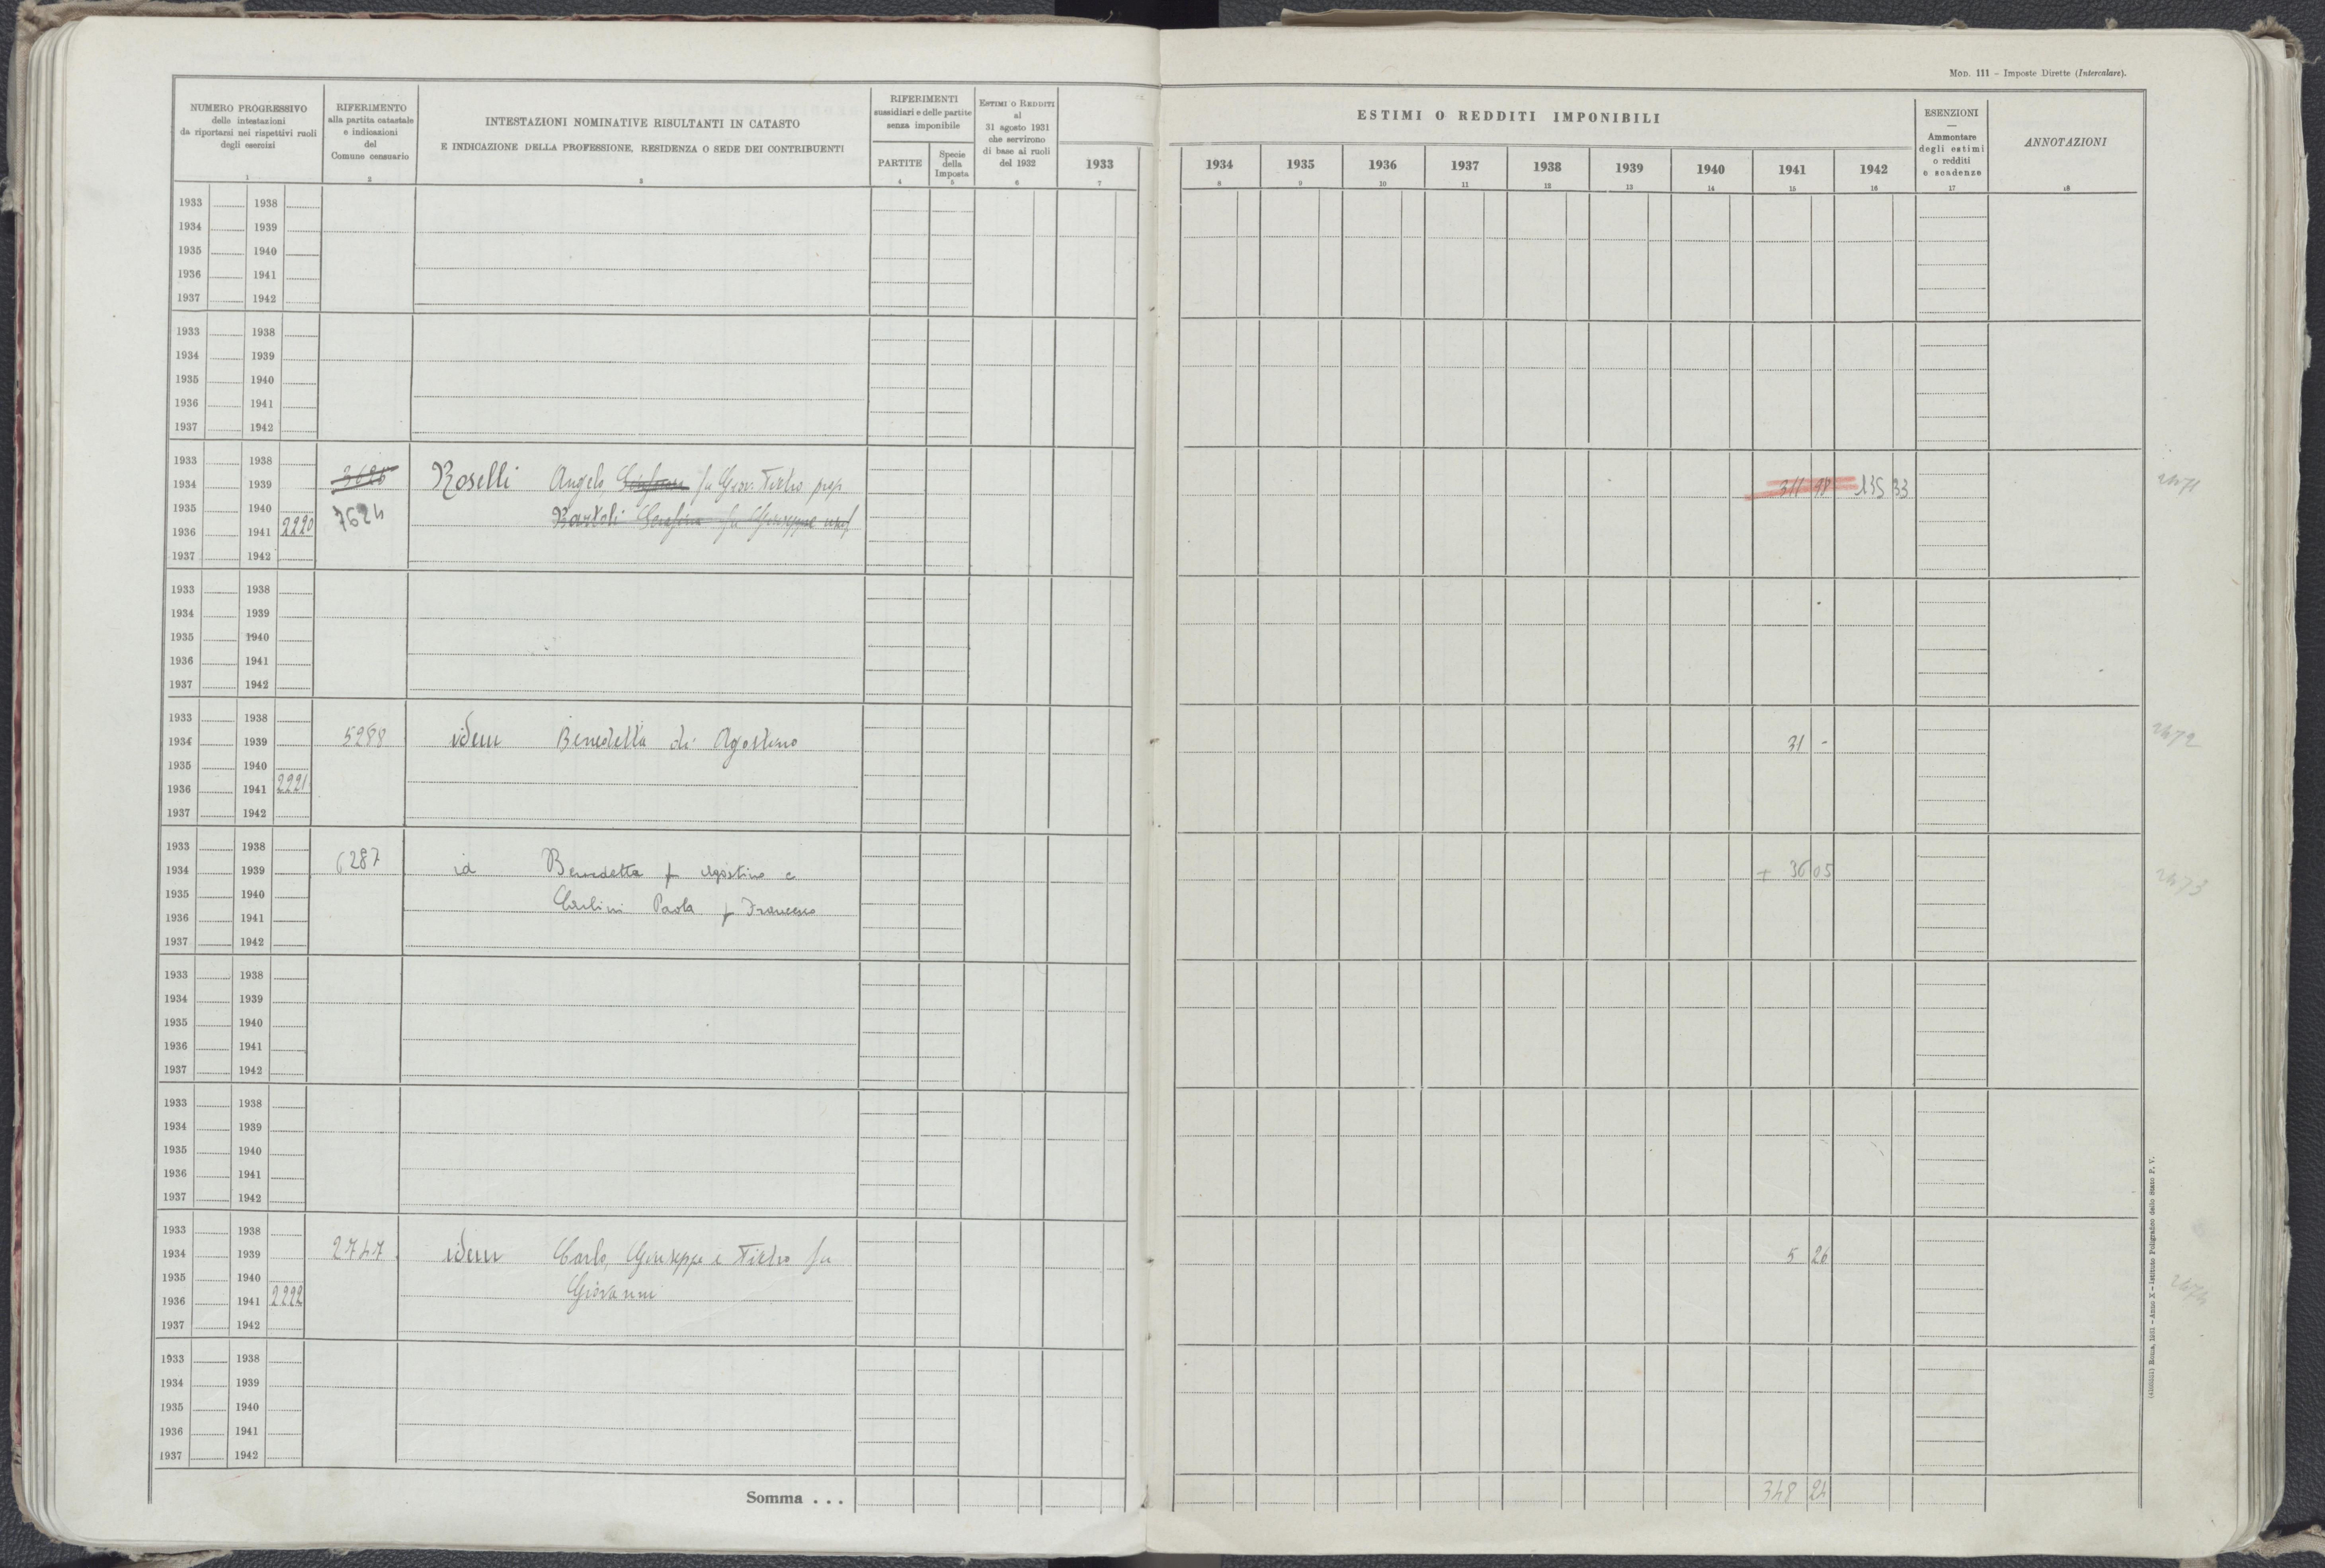 Mod. 111 – Imposte Dirette (Intercalare).
NUMERO PROGRESSIVO
delle intestazioni
da riportarsi nei rispettivi ruoli
degli esercizi
1
RIFERIMENTO
alla partita catastale
e indicazioni
del
Comune censuario
2
INTESTAZIONI NOMINATIVE RISULTANTI IN CATASTO
E INDICAZIONE DELLA PROFESSIONE, RESIDENZA O SEDE DEI CONTRIBUENTI
3
RIFERIMENTI
sussidiari e delle partite
senza imponibile
PARTITE
4
Specie
della
Imposta
5
Estimi o Redditi
al
31 agosto 1931
che servirono
di base ai ruoli
del 1932
6
ESTIMI O REDDITI IMPONIBILI
1933 1934 1935 1936 1937 1938 1939 1940 1941 1942
7 8 9 10 11 12 13 14 15 16
ESENZIONI
—
Ammontare
degli estimi
o redditi
e scadenze
17
ANNOTAZIONI
18
1933 1938
1934 1939
1935 1940
1936 1941
1937 1942
1933 1938
1934 1939
1935 1940
1936 1941
1937 1942
1933 1938
1934 1939 Roselli Angelo, fu Giov. Pietro prop 311 98 135 33 2471
1935 1940 7624 Bartoli Serafina fu Giuseppe usuf
1936 1941 2220
1937 1942
1933 1938
1934 1939
1935 1940
1936 1941
1937 1942
1933 1938
1934 1939 5288 idem Benedetta di Agostino 31 - 2472
1935 1940
1936 1941 2221
1937 1942
1933 1938
1934 1939 6287 id Benedetta f Agostino e + 36 05 2473
1935 1940 Carlini Paola f Francesco
1936 1941
1937 1942
1933 1938
1934 1939
1935 1940
1936 1941
1937 1942
1933 1938
1934 1939
1935 1940
1936 1941
1937 1942
1933 1938
1934 1939 2747 idem Carlo, Giuseppe e Pietro fu 5 26
1935 1940 Giovanni 2474
1936 1941 2222
1937 1942
1933 1938
1934 1939
1935 1940
1936 1941
1937 1942
Somma . . . 348 24